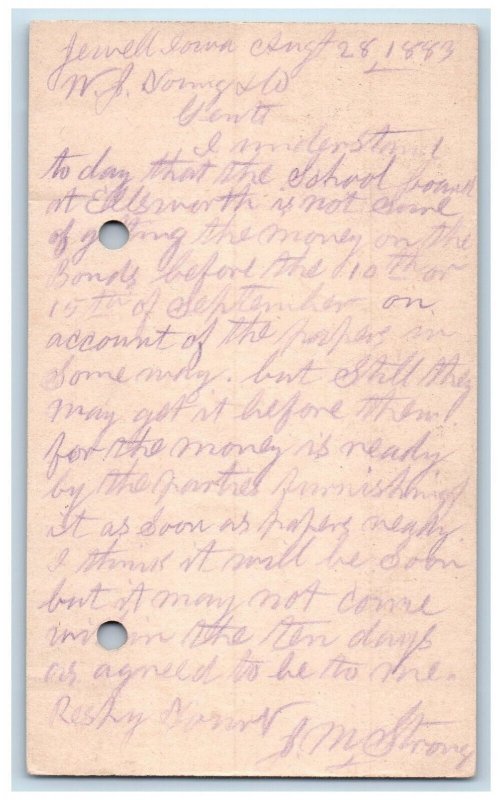 Jewell Iowa Augt 28, 1883
W. J. Young & Co
Gentt
I understand
to day that the School board
at Ellsworth is not sure
of getting the money on the
Bonds before the 10th or
15th of September on
account of the papers in
some way. but still they
may get it before then!
for the money is ready
by the parties furnishing
it as soon as papers ready
I think it will be soon
but it may not come
within the ten days
as agreed to be to me.
Respy Yours
J. M. Strong